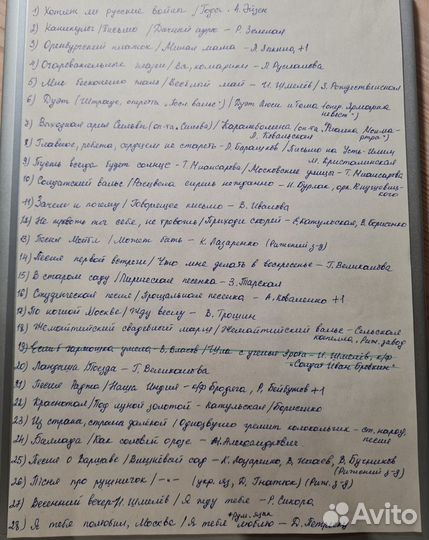 1) Хотят ли русские войны / Годы - А. Эйзен
2) Каникулы / Письмо / Далекий друг - Р. Зеленая
3) Оренбургский платок / Милая мама - Л. Зыкина, +1
4) Очаровательные глазки / Вы, комарики - Л. Русланова
5) Мне бесконечно жаль / Весёлый май - И. Шмелёв / З. Рождественская
6) Дуэт (Штраус, оперетта "вальс") / Дуэт и Тома (опер. Ярмарка невест")
7) Выходная ария Сильвы (оп-та Сильва) / Карамболина (оп-та "Фиалка Монмартра") - Л. Ковальская
8) Главное, ребята, сердцем не стареть - Л. Барашков / Письмо на Усть-Илим М. Кристалинская
9) Пусть всегда будет солнце - Т. Миансарова / Московские улицы - Т. Миансарова
10) Солдатский вальс / Расцвела сирень - И. Бурлак, орк. Кнушевицкого
11) Зачем и почему / Говорящее письмо - В. Иванова
12) Не тревожь ты себя, не тревожь / Приходи скорей - В. Катульская, В. Борисенко
13) Песня Мэкки / Может быть - К. Лазаренко (Рижский з-д)
14) Песня первой встречи / Что мне делать в воскресенье - Г. Великанова
15) В старом саду / Лирическая песенка - З.
16) Студенческая песня / Прощальная песенка - А. Коваленко +1
17) По ночной Москве / Жду весну - В. Трошин
18) Жемайтийский свадебный марш / Жемайтийский вальс - Сельская капелла, Риж. завод
19) гармошка умела - В. Власов / с ученья - И. Шмелёв, к/ф "Солдат Иван Бровкин"
20) Ландыши / Поезда - Г. Великанова
21) Песня Раджа / Наша Индия - к/ф Бродяга, Р. Бейбутов +1
22) Краснотал / Под луной золотой - Катульская / Борисенко
23) Из страны, страны далёкой / Однозвучно гремит колокольчик - ст. народ. песня
24) Баллада / Как соловей о розе - М. Александрович
25) Песня о Варшаве / Вишнёвый сад - К. Лазаренко, В. Нечаев, В. Бунчиков (Рижский з-д)
26) Пісня про рушничок / -"- (укр. яз, Д. Гнатюк) (Риж. з-д)
27) Весенний вечер - И. Шмелёв / Я жду тебя - Р. Сикора
28) Я тебя полюбил, Москва / Я тебя люблю - Д.
Avito